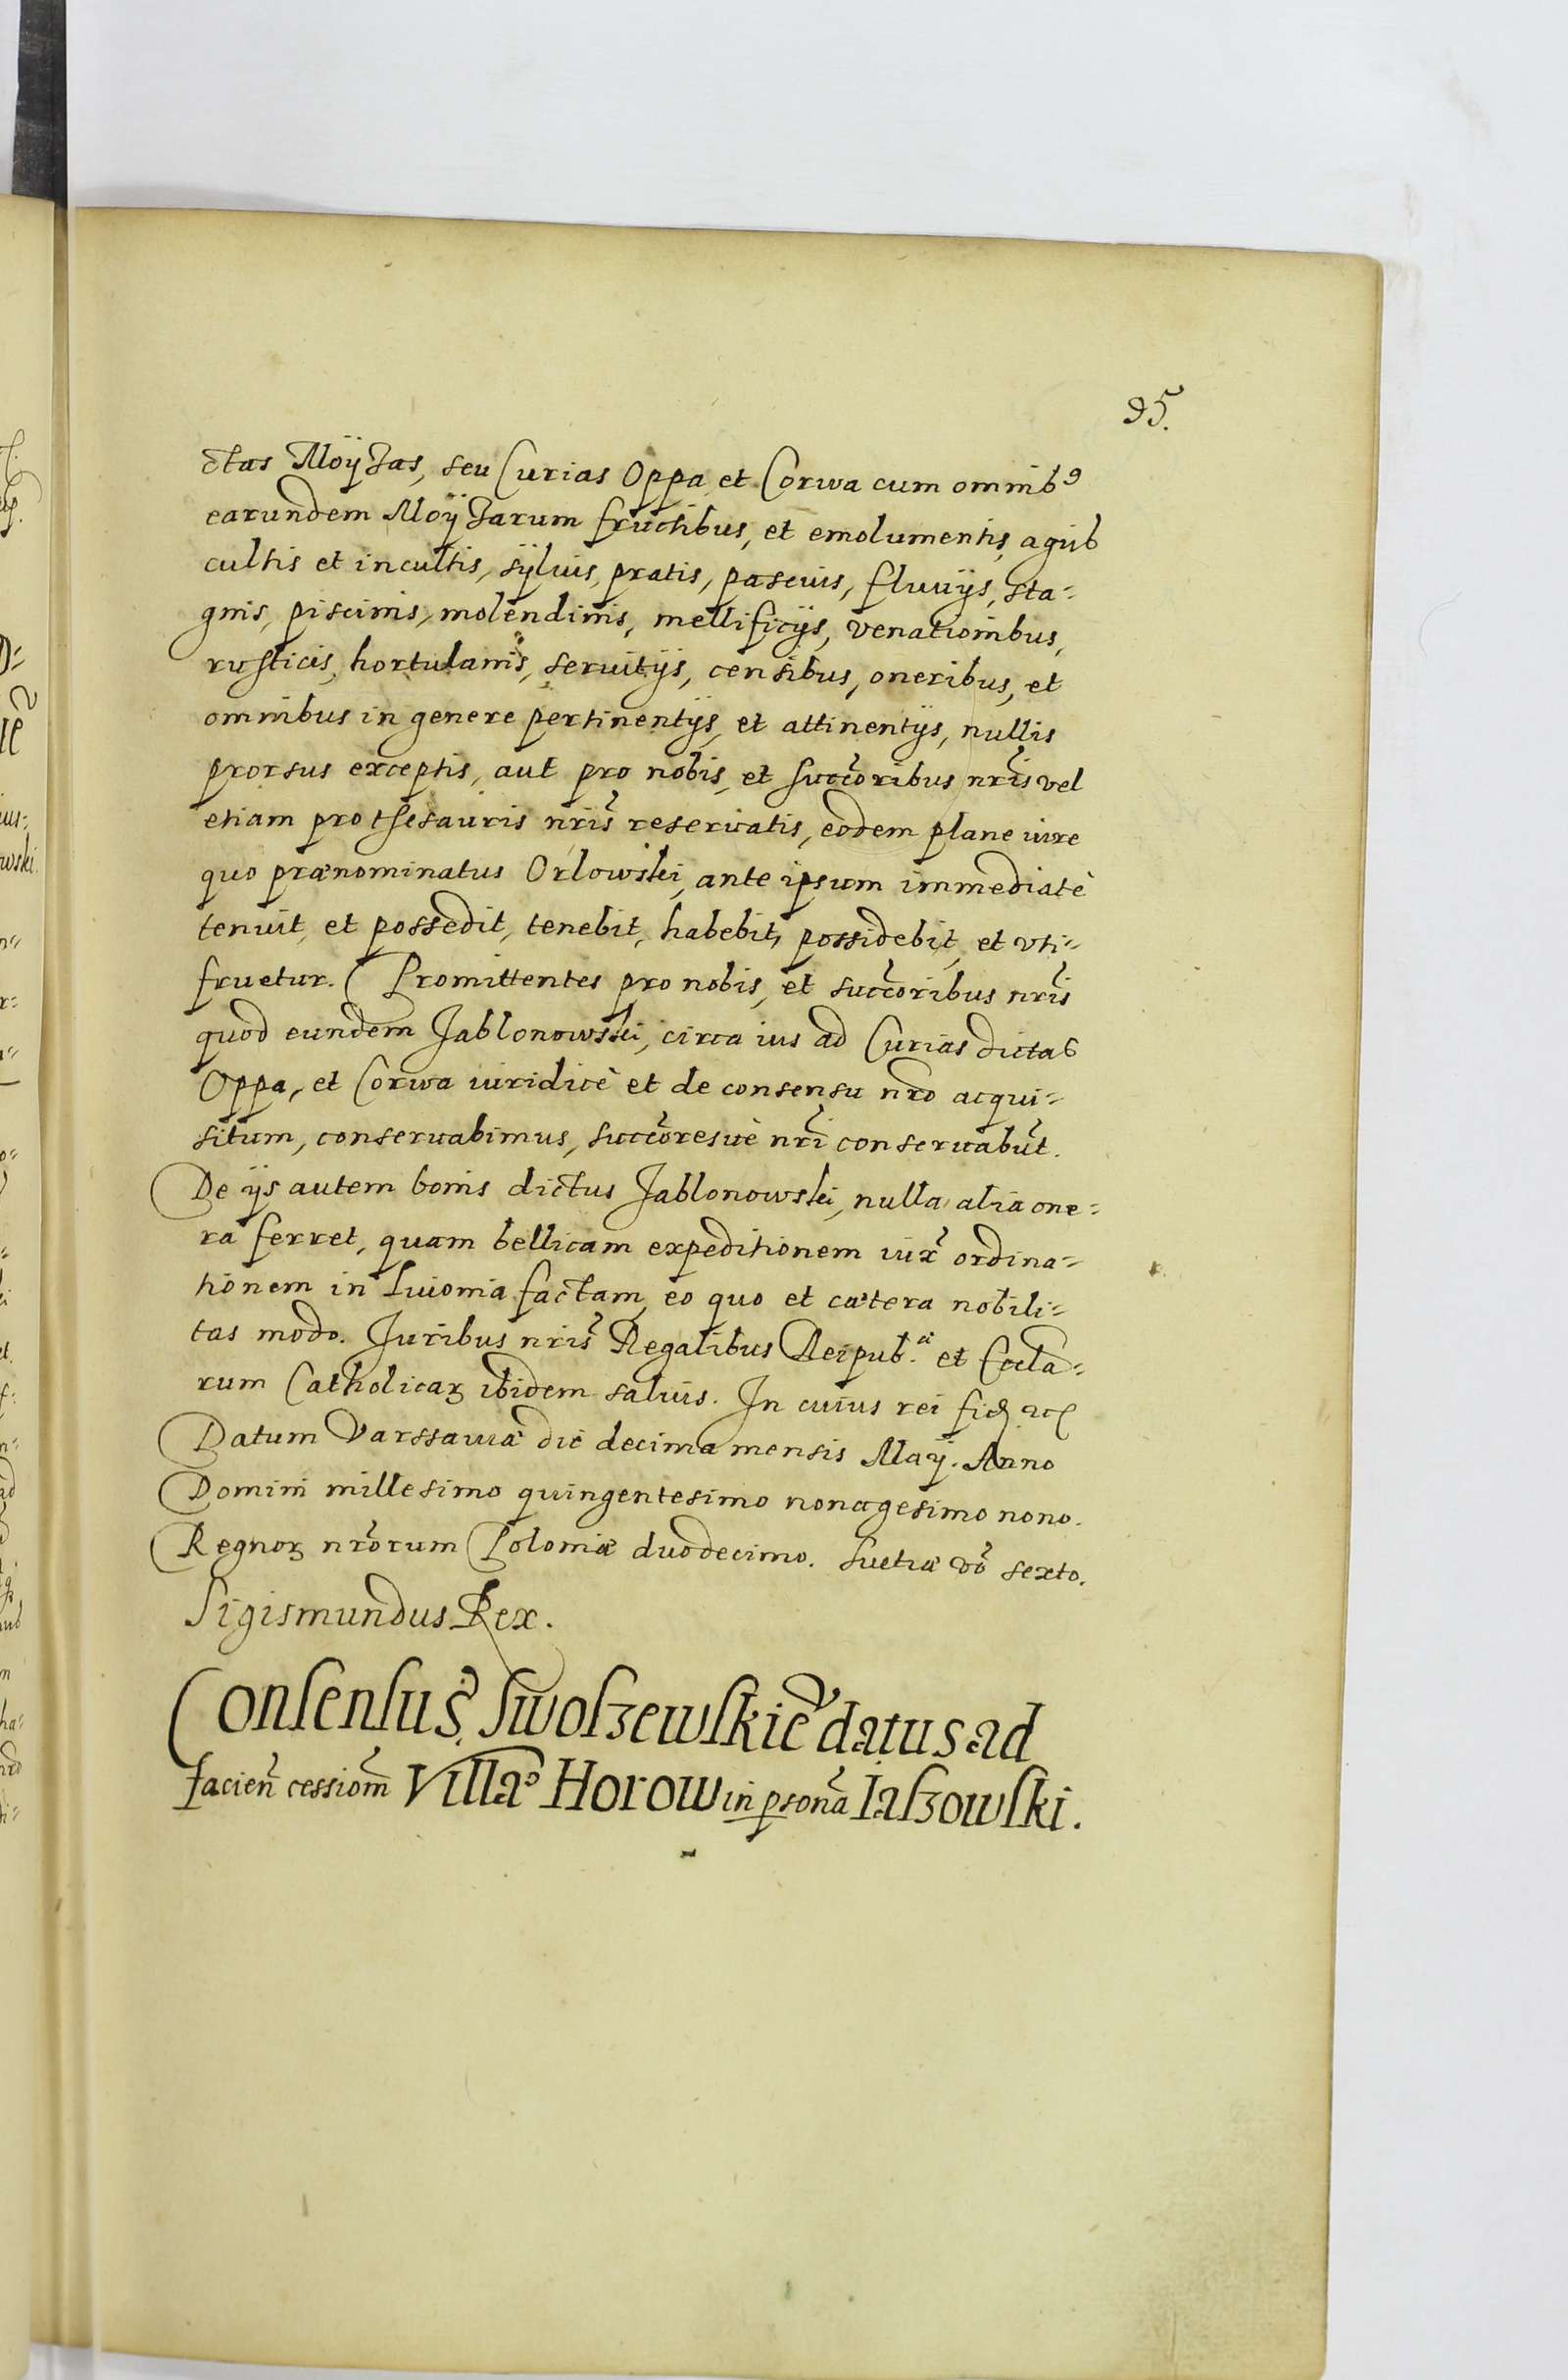 95.
ctas Moyzas, seu Curias Oppa et Corwa cum omnibꝰ
earundem Moyzarum fructibus, et emolumentis, agris
cultis et incultis, syluis, pratis, pascuis, fluuijs, sta=
gnis, piscinis, molendinis, mellificijs, venationibus,
rusticis, hortulanis, seruitijs, censibus, oneribus, et
omnibus in genere pertinentijs, et attinentijs, nullis
prorsus exceptis, aut pro nobis, et succoribus nris vel
etiam pro thesauris nris reseruatis, eodem plane iure
quo prænominatus Orlowski, ante ipsum immediatè
tenuit, et possedit, tenebit, habebit, possidebit, et vti=
fruetur. Promittentes pro nobis, et succoribus nris
quod eundem Jablonowski, circa ius ad Curias dictas
Oppa, et Corwa iuridicè et de consensu nro acqui=
situm, conseruabimus, succoresuè nri conseruabut.
De ijs autem bonis dictus Jablonowski, nulla alia one=
ra ferret, quam bellicam expeditionem iux ordina=
tionem in Liuonia factam, eo quo et cætera nobili=
tas modo. Juribus nris Regalibus Reipub. et Eccla=
rum Catholicaꝝ ibidem saluis. In cuius rei fid
Datum Varssauiæ die decima mensis Maij. Anno
Domini millesimo quingentesimo nonagesimo nono.
Regnoꝝ nrorum Poloniæ duodecimo. Suetiæ vo sexto.
Sigismundus Rex.
Consensus Swoſzewſkie datus ad
facien cessiom Villæ Horow in psona Iaſzowſki.